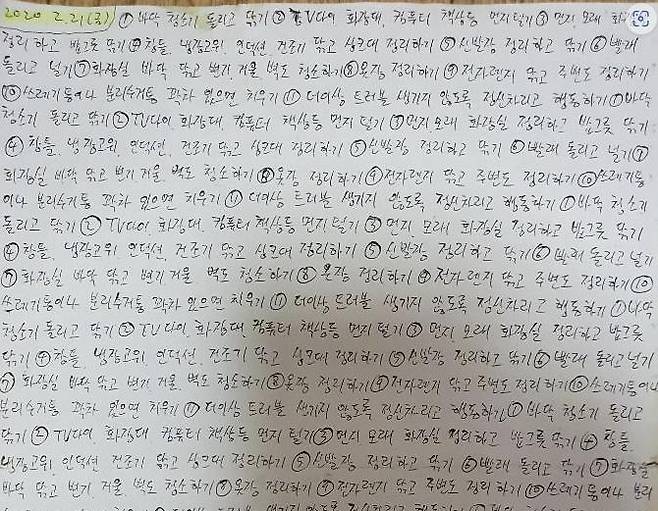 2020 2.21(금) ① 바닥 청소기 돌리고 닦기 ② TV다이 화장대, 컴퓨터 책상등 먼지털기 ③ 먼지, 모래 화
정리하고 밥그릇 닦기 ④ 창틀, 냉장고위, 인덕션 건조기 닦고 싱크대 정리하기 ⑤ 신발장 정리하고 닦기 ⑥ 빨래
돌리고 널기 ⑦ 화장실 바닥 닦고 변기, 거울 벽도 청소하기 ⑧ 옷장 정리하기 ⑨ 전자렌지 닦고 주변도 정리하기
⑩ 쓰레기통이나 분리수거통 꽉차 있으면 치우기 ⑪ 더이상 트러블 생기지 않도록 정신차리고 행동하기 ① 바닥
청소기 돌리고 닦기 ② TV다이 화장대 컴퓨터 책상등 먼지 털기 ③ 먼지 모래 화장실 정리하고 밥그릇 닦기
④ 창틀, 냉장고위, 인덕션, 건조기 닦고 싱크대 정리하기 ⑤ 신발장 정리하고 닦기 ⑥ 빨래 돌리고 널기 ⑦
화장실 바닥 닦고 변기 거울 벽도 청소하기 ⑧ 옷장 정리하기 ⑨ 전자렌지 닦고 주변도 정리하기 ⑩ 쓰레기통
이나 분리수거통 꽉차 있으면 치우기 ⑪ 더이상 트러블 생기지 않도록 정신차리고 행동하기 ① 바닥 청소기
돌리고 닦기 ② TV다이, 화장대, 컴퓨터 책상등 먼지털기 ③ 먼지, 모래 화장실 정리하고 밥그릇 닦기
④ 창틀, 냉장고위, 인덕션 건조기 닦고 싱크대 정리하기 ⑤ 신발장 정리하고 닦기 ⑥ 빨래 돌리고 널기
⑦ 화장실 바닥 닦고 변기 거울 벽도 청소하기 ⑧ 옷장 정리하기 ⑨ 전자렌지 닦고 주변도 정리하기 ⑩
쓰레기통이나 분리수거통 꽉차 있으면 치우기 ⑪ 더이상 트러블 생기지 않도록 정신차리고 행동하기 ① 바닥
청소기 돌리고 닦기 ② TV다이, 화장대, 컴퓨터 책상등 먼지털기 ③ 먼지, 모래 화장실 정리하고 밥그릇
닦기 ④ 창틀, 냉장고위, 인덕션, 건조기 닦고 싱크대 정리하기 ⑤ 신발장 정리하고 닦기 ⑥ 빨래 돌리고널기
⑦ 화장실 바닥 닦고 변기 거울, 벽도 청소하기 ⑧ 옷장 정리하기 ⑨ 전자렌지 닦고 주변도 정리하기 ⑩ 쓰레기통이나
분리수거통 꽉차 있으면 치우기 ⑪ 더이상 트러블 생기지 않도록 정신차리고 행동하기 ① 바닥 청소기 돌리고
닦기 ② TV다이, 화장대 컴퓨터 책상등 먼지 털기 ③ 먼지 모래 화장실 정리하고 밥그릇 닦기 ④ 창틀,
냉장고위, 인덕션 건조기 닦고 싱크대 정리하기 ⑤ 신발장 정리하고 닦기 ⑥ 빨래 돌리고 닦기 ⑦ 화장실
바닥 닦고 변기, 거울 벽도 청소하기 ⑧ 옷장 정리하기 ⑨ 전자렌지 닦고 주변도 정리하기 ⑩ 쓰레기통이나 분리